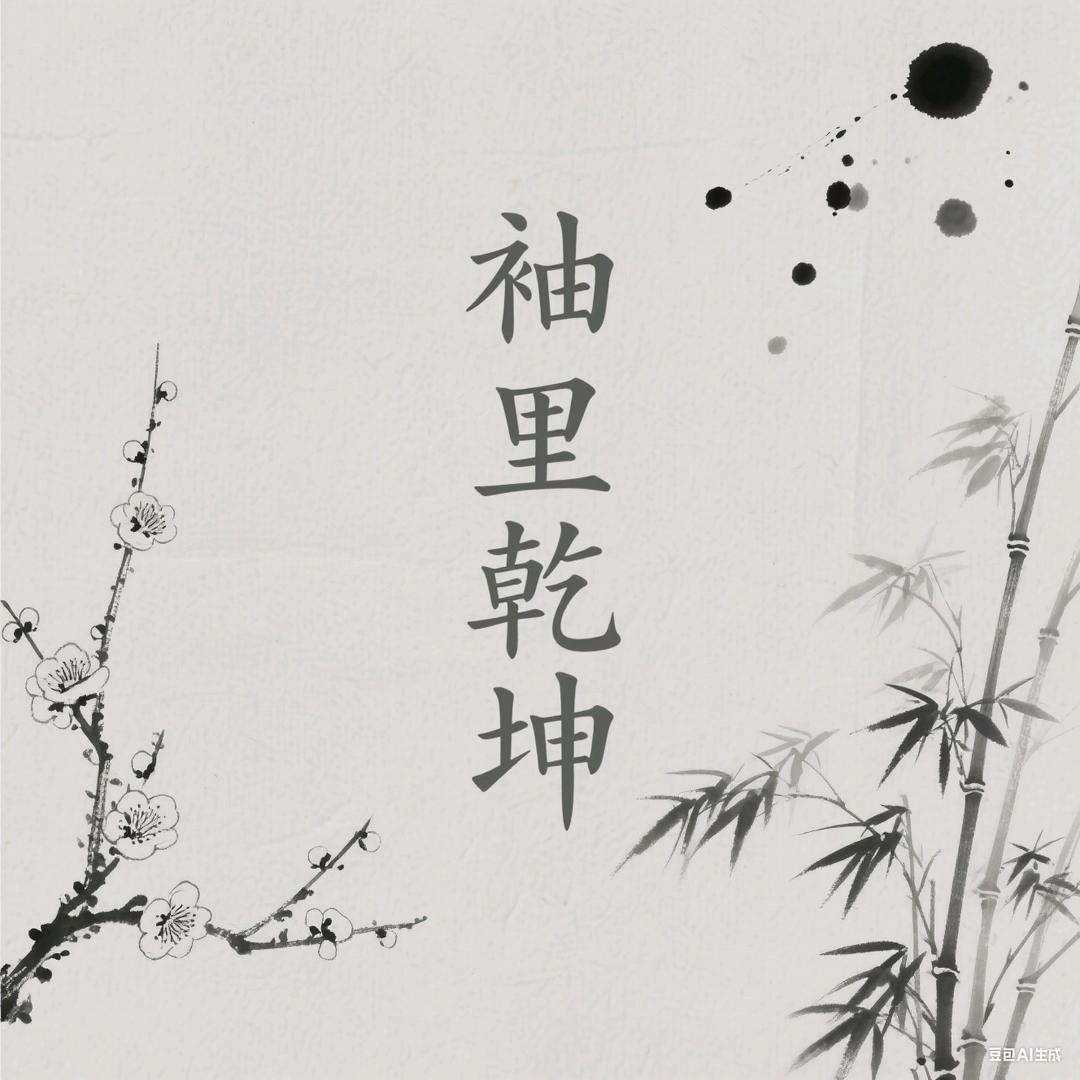 袖里乾坤
豆包AI生成